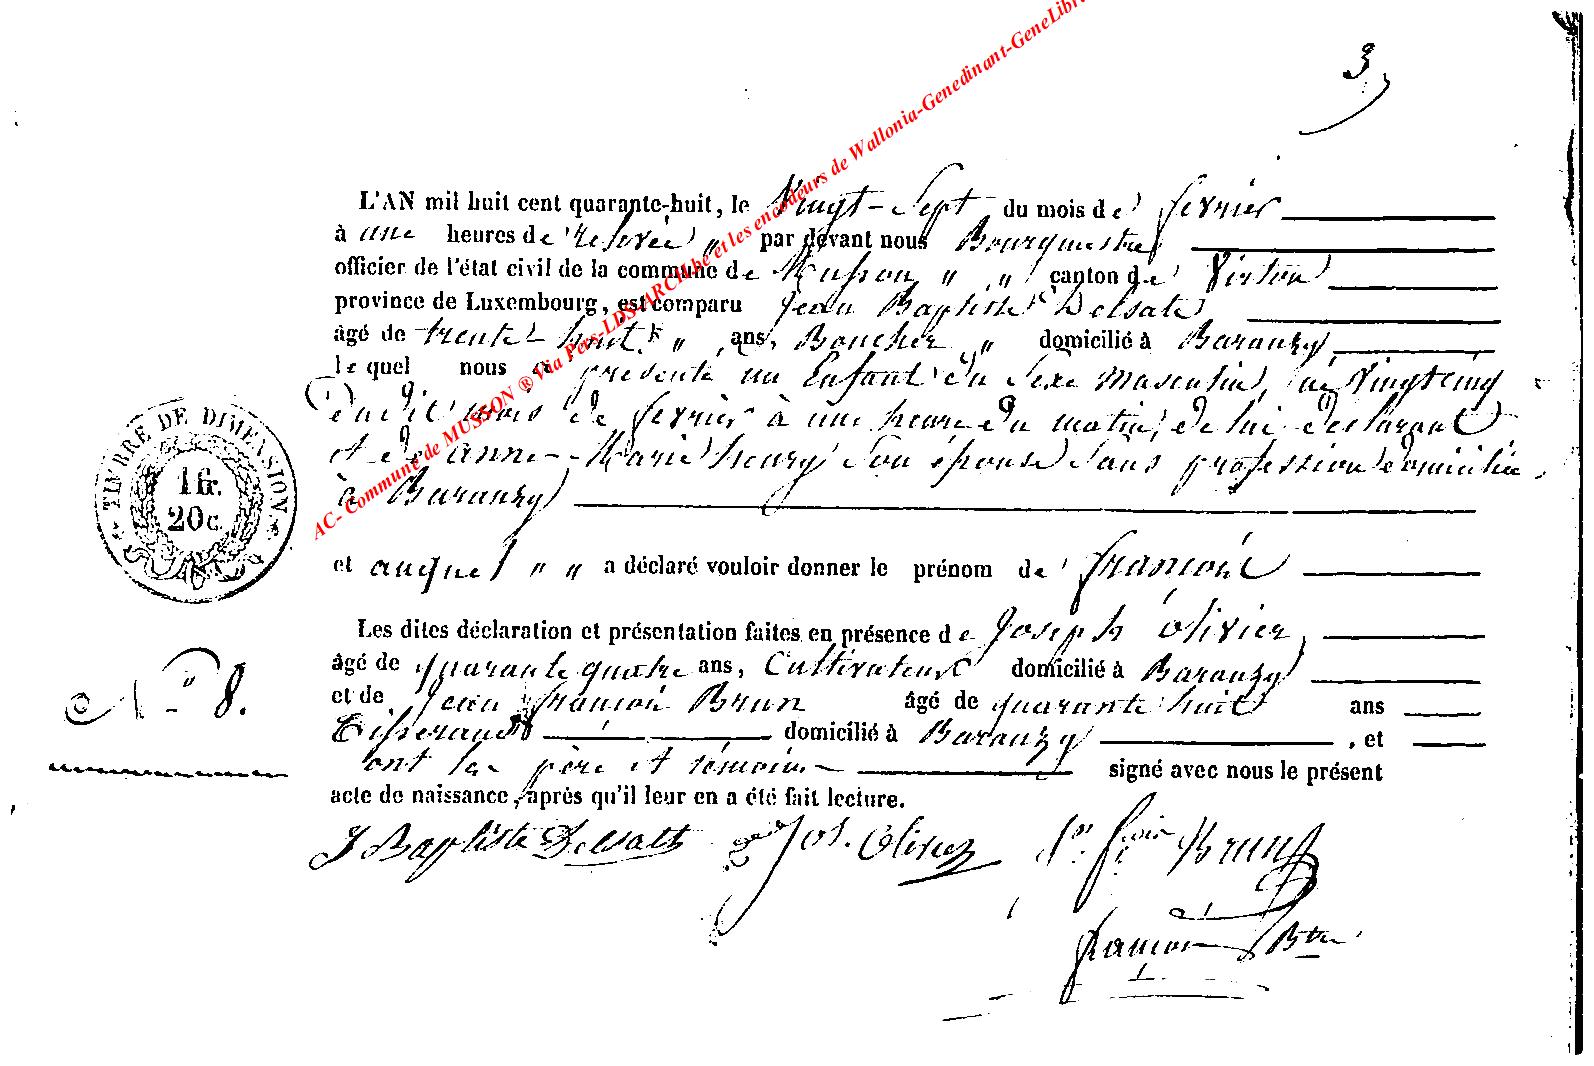 3
L'AN mil huit cent quarante-huit, le Vingt-Sept du mois de fevrier
à une heures de relevée " par devant nous Bourgmestre
officier de l'état civil de la commune de Musson " " canton de Virton
province de Luxembourg, est comparu Jean Baptiste Delsate
âgé de trente huit " ans, Boucher " domicilié à Baranzy
le quel nous a présenté un Enfant du Sexe Masculin, né Vingt cinq
du dit mois de fevrier à une heure du matin, de lui declarant
et de anne-Marie henry son épouse sans profession domiciliée
à Baranzy
et auquel " " a déclaré vouloir donner le prénom de françois
Les dites déclaration et présentation faites en présence de Joseph Olivier,
âgé de quarante quatre ans, Cultivateur domicilié à Baranzy
et de Jean françois Brun âgé de quarante huit ans
Tisserand domicilié à Baranzy , et
ont les père et témoins signé avec nous le présent
acte de naissance, après qu'il leur en a été fait lecture.
J Baptiste Delsatt Jos. Olivier Brun
françois Btre
TIMBRE DE DIMENSION
1 fr.
20 c.
N° 8.
AC- Commune de MUSSON ® Via Pers-LDS-ARCH.be et les encodeurs de Wallonia-Genedinant-GeneLibr